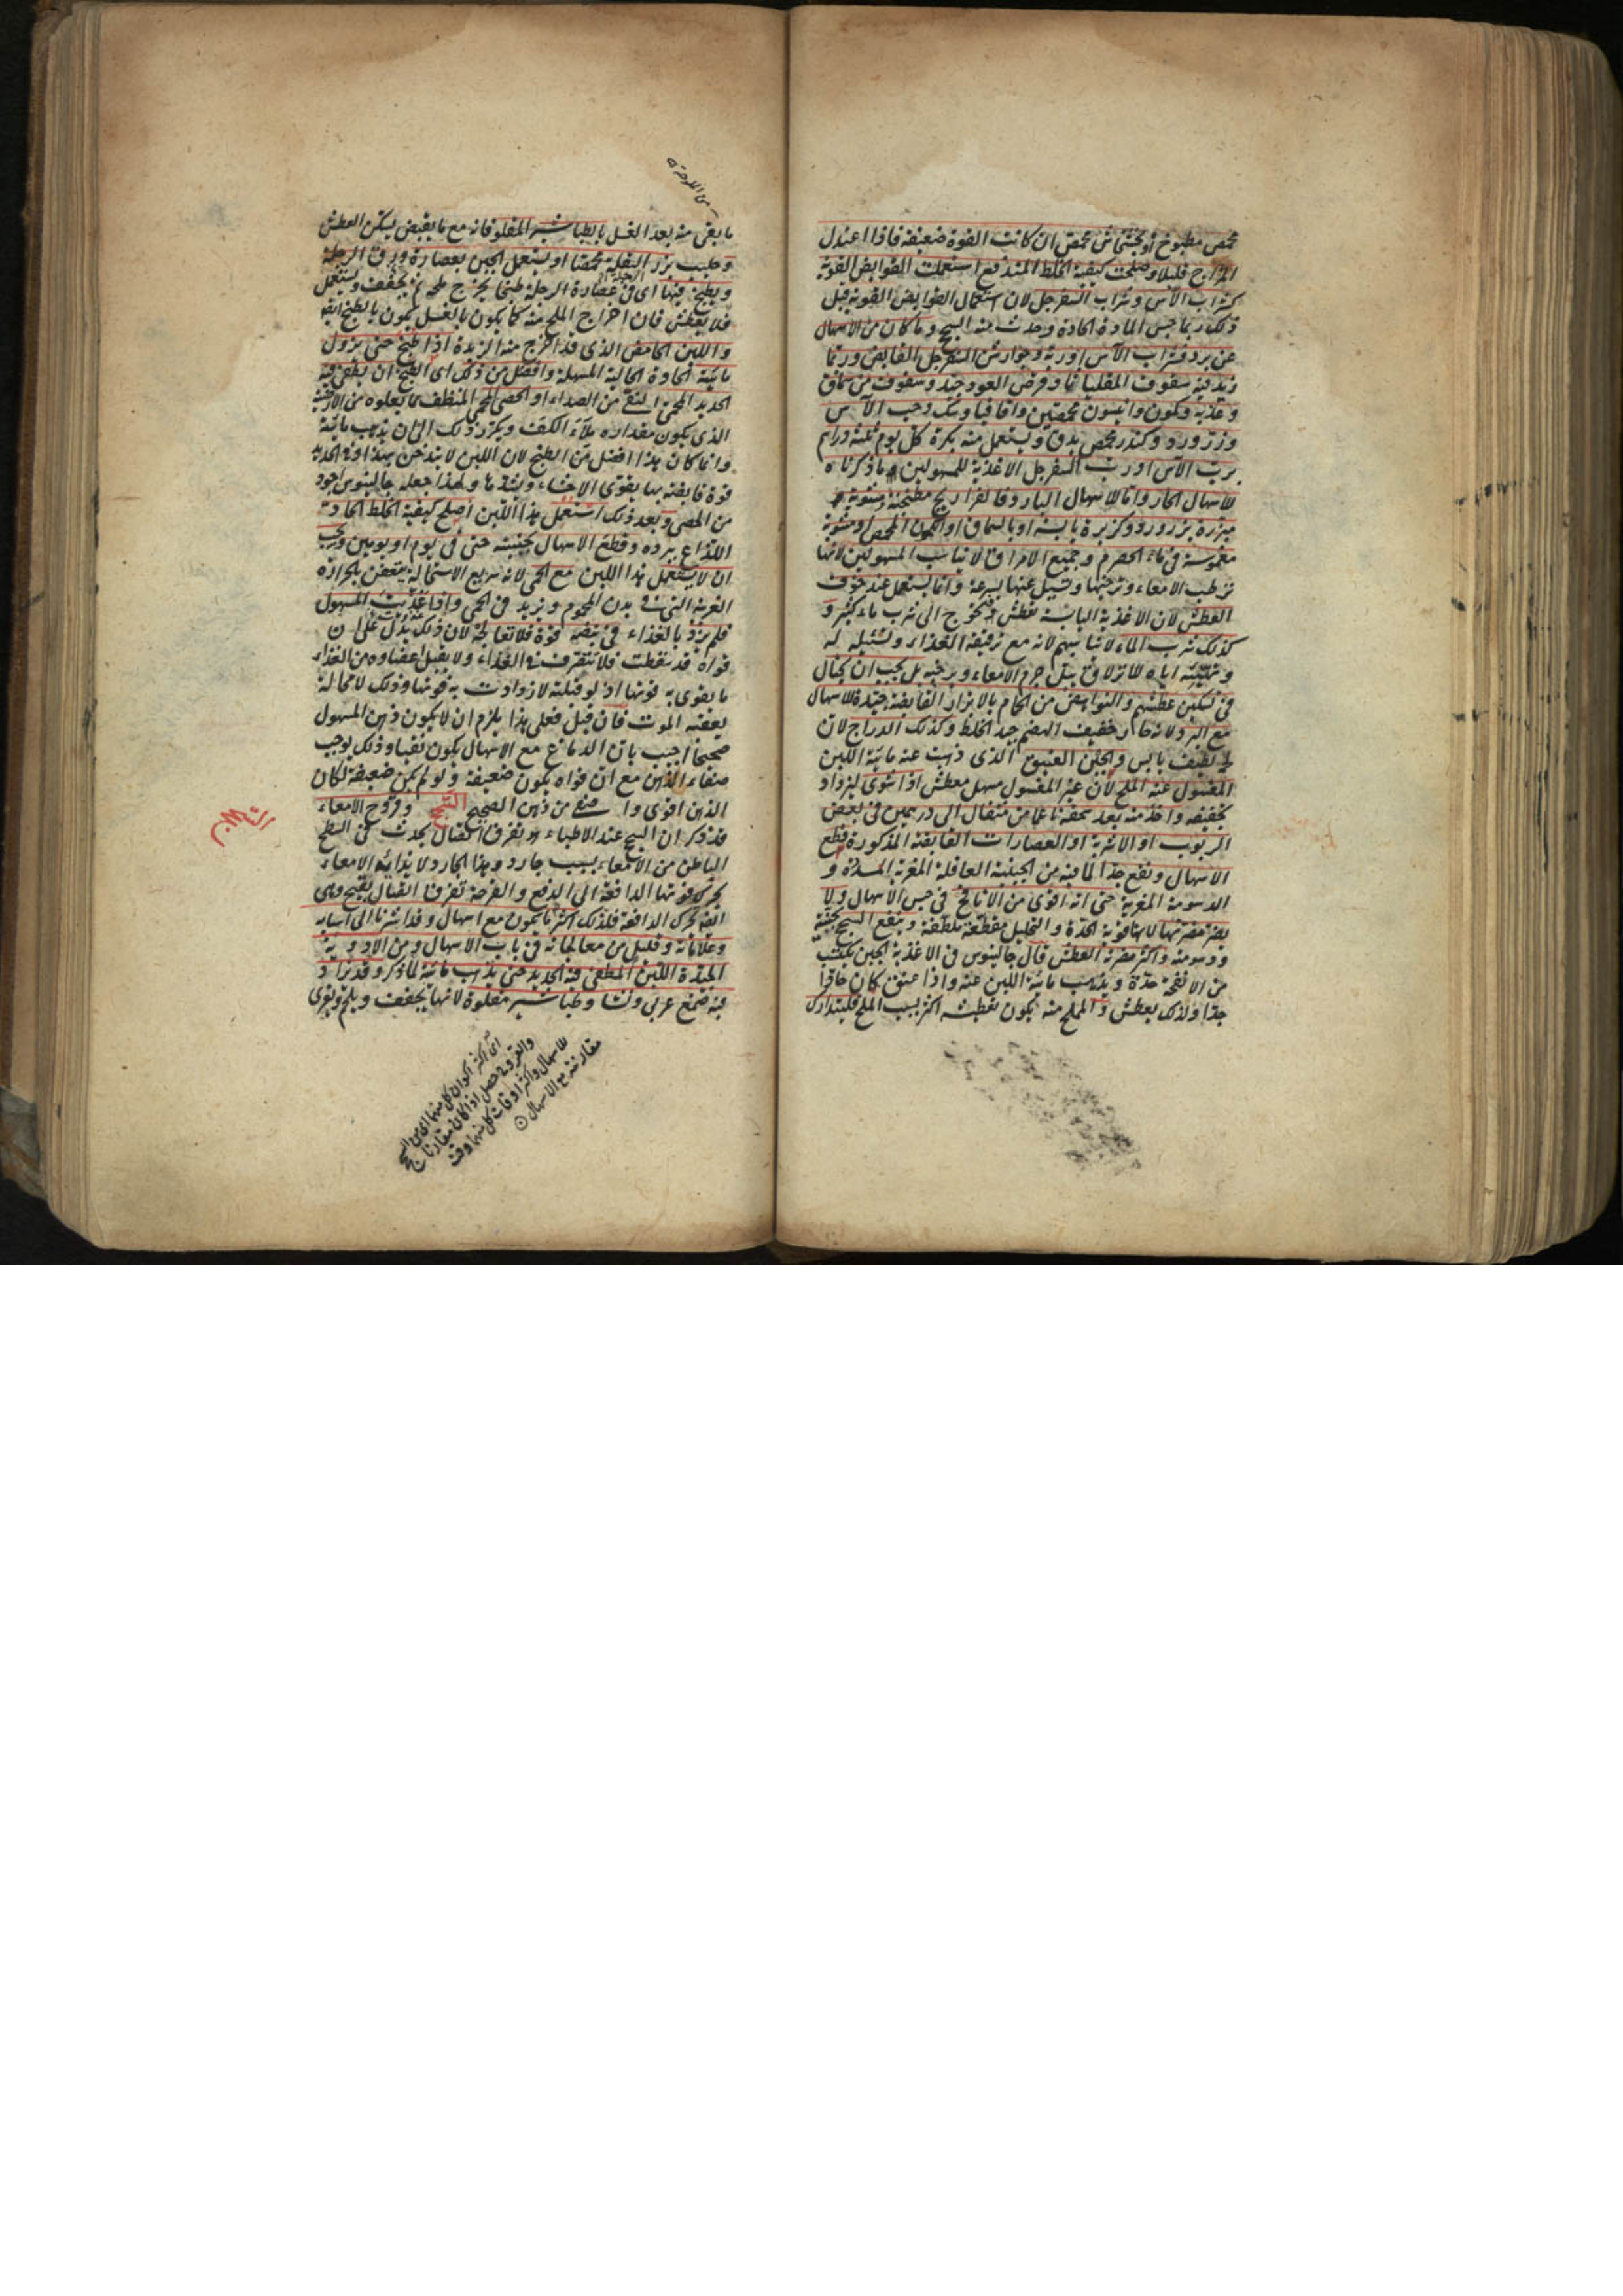 محمص مطبوخ او بخشخاش محمص ان كانت القوة ضعيفة فاذا اعتدل
المزاج قليلا وصلحت كيفية الخلط المندفع استعملت القوابض القوية
كشراب الآس وشراب السفرجل لان استعمال القوابض القوية قبل
ذلك ربما حبس المادة الحادة وحدث منه السحج وما كان من الاسهال
عن برد فشراب الآس او ربه وجوارش السفرجل القابض وربما
زيد فيه سفوف المقلياثا وقرص العود جيد وسفوف من سماق
وكمون وانيسون محمصين واقاقيا وسك وحب الآس
وزر ورد وكندر محمص يدق ويستعمل منه بكرة كل يوم ثلثة دراهم
برب الآس او رب السفرجل الاغذية للمسهولين ما ذكرناه
للاسهال الحار واما الاسهال البارد فالفراريج مطجنة ومشوية
مبزرة بزر ورد وكزبرة يابسة او بالسماق او الكمون المحمص او مشوية
مغموسة في ماء الحصرم وجميع الامراق لا تناسب المسهولين لانها
ترطب الامعاء وترخيها وتسيل عنها بسرعة وانما يستعمل عند خوف
العطش لان الاغذية اليابسة تعطش وتحوج الى شرب ماء كثير و
كذلك شرب الماء لا يناسبهم لانه مع ترقيقه الغذاء وتسييله له
وتهيئته اياه للانزلاق يبل جرم الامعاء ويرخيه بل يجب ان يحتال
في تسكين عطشهم والنواهض من الحمام بالابزار القابضة جيدة للاسهال
مع البرد لانه حار خفيف الهضم جيد الخلط وكذلك الدراج لان
لطيف يابس والجبن العتيق الذي ذهبت عنه مائية اللبن
المغسول عنه الملح لان غير المغسول مسهل معطش اذا شوى ليزداد
تجفيفه واخذ منه بعد سحقه ناعما من مثقال الى درهمين في بعض
الربوب او الاشربة او العصارات القابضة المذكورة قطع
الاسهال ونفع جدا لما فيه من الجبنية العاقلة المغرية المسددة و
الدسومة المغرية حتى انه اقوى من الانافح في حبس الاسهال ولا
يضر مضرتها لانها قوية الحدة والتحليل مقطعة ملطفة وينفع السحج بجبنيته
ودسومته واكثر مضرته العطش قال جالينوس في الاغذية الجبن يكتسب
من الانفحة حدة ويذهب مائية اللبن عنه واذا عتق كان حادا
جدا ولذلك يعطش والمملح منه يكون تعطيشه اكثر بسبب الملح فليتدارك
ما بقى منه بعد الغسل بالطباشير المقلو فانه مع ما يقبض يسكن العطش
وحليب بزر البقلة محمصا او يستعمل الجبن بعصارة ورق الرجلة
ويطبخ فيها اى في عصارة الرجلة طبخا يخرج ملحه ثم يجفف ويستعمل
فلا يعطش فان اخراج الملح منه كما يكون بالغسل يكون بالطبخ ايضا
واللبن الحامض الذي قد اخرج منه الزبدة اذا طبخ حتى يزول
مائيته الحادة الجالية المسهلة وافضل من ذلك اى الطبخ ان يطفى فيه
الحديد المحمى النقي من الصداء او الحصى المحمى المنظف مما يعلوه من الارضية
الذي يكون مقداره ملاء الكف ويكرر ذلك الى ان يذهب مائيته
وانما كان هذا افضل من الطبخ لان اللبن لا يتدخن بهذا وفي الحديد
قوة قابضة بها يقوى الاحشاء ويشدها ولهذا جعله جالينوس اجود
من الحصى وبعد ذلك استعمل هذا اللبن اصلح كيفية الخلط الحاد
اللذاع ببرده وقطع الاسهال بجبنيته حتى في يوم او يومين ويجب
ان لا يستعمل هذا اللبن مع الحمى لانه سريع الاستحالة يتعفن بالحرارة
الغريبة التي في بدن المحموم ويزيد في الحمى واذا غذيت المسهول
فلم يزد بالغذاء في نبضه قوة فلا تعالجه لان ذلك يدل على ان
قواه قد سقطت فلا تتصرف في الغذاء ولا يقبل اعضاوه من الغذاء
ما يقوى به قوتها اذ لو قبلته لازدادت به قوتها وذلك لا محالة
يعقبه الموت فان قيل فعلى هذا يلزم ان لا يكون ذهن المسهول
صحيحا اجيب بان الدماغ مع الاسهال يكون نقيا وذلك يوجب
صفاء الذهن مع ان قواه يكون ضعيفة ولو لم يكن ضعيفة لكان
الذهن اقوى واصفى من ذهن الصحيح السحج وقروح الامعاء
قد ذكر ان السحج عند الاطباء هو تفرق اتصال يحدث في السطح
الباطن من الامعاء بسبب جارد وهذا الجارد لا يذائه الامعاء
يحرك قوتها الدافعة الى الدفع والقرحة تفرق اتصال يقيح وهي
ايضا تحرك الدافعة فلذلك اكثر ما يكون مع اسهال وقد اشرنا الى اسبابه
وعلاماته وقليل من معالجاته في باب الاسهال ومن الادوية
الجيدة اللبن المطفى فيه الحديد حتى يذهب مائيته لما ذكر وقد يزاد
فيه صمغ عربي ونشا وطباشير مقلوة لانها يجفف ويلحم ويقوى
السحج
اى اكثر اكوان كل منهما اى من السحج
والقروح حصل اذا كان مقارنا
للاسهال واكثر اوقات كل منهما وقت
مقارنته مع الاسهال